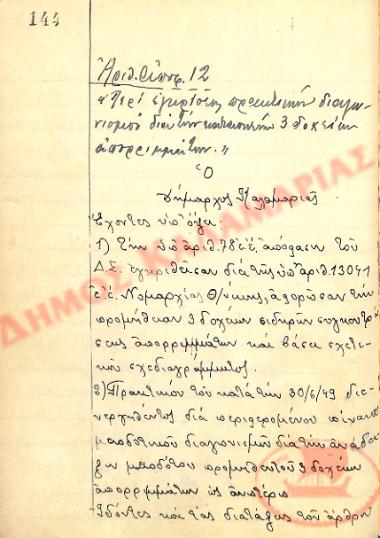 144
Ἀριθ. Ἀποφ. 12
«Περί ἐγκρίσεως πρακτικῶν διαγω-
νισμοῦ διά τήν κατασκευήν 3 δοχείων
ἀπορριμμάτων.»
Ὁ
Δήμαρχος Καλαμαριᾶς
Ἔχοντες ὑπ' ὄψει:
1) Τήν ὑπ' ἀριθ. 78 ἐ.ἔ. ἀπόφασιν τοῦ
Δ.Σ. ἐγκριθεῖσαν διά τῆς ὑπ' ἀριθ. 13041
ἐ.ἔ. Νομαρχίας Θ/νίκης, ἀφορῶσαν τήν
προμήθειαν 3 δοχείων σιδηρῶν συγκεντρώ-
σεως ἀπορριμμάτων καί βάσει σχετι-
κοῦ σχεδιαγράμματος.
2) Πρακτικόν τοῦ κατά τήν 30/6/49 διε-
νεργηθέντος διά περιφερομένου πίνακος
μειοδοτικοῦ διαγωνισμοῦ διά τήν ἀνάδει-
ξιν μειοδότου προμηθευτοῦ 3 δοχείων
ἀπορριμμάτων ὡς ἀνωτέρω
Ἰδόντες καί τάς διατάξεις τοῦ ἄρθρου
ΔΗΜΟΣ ΚΑΛΑΜΑΡΙΑΣ